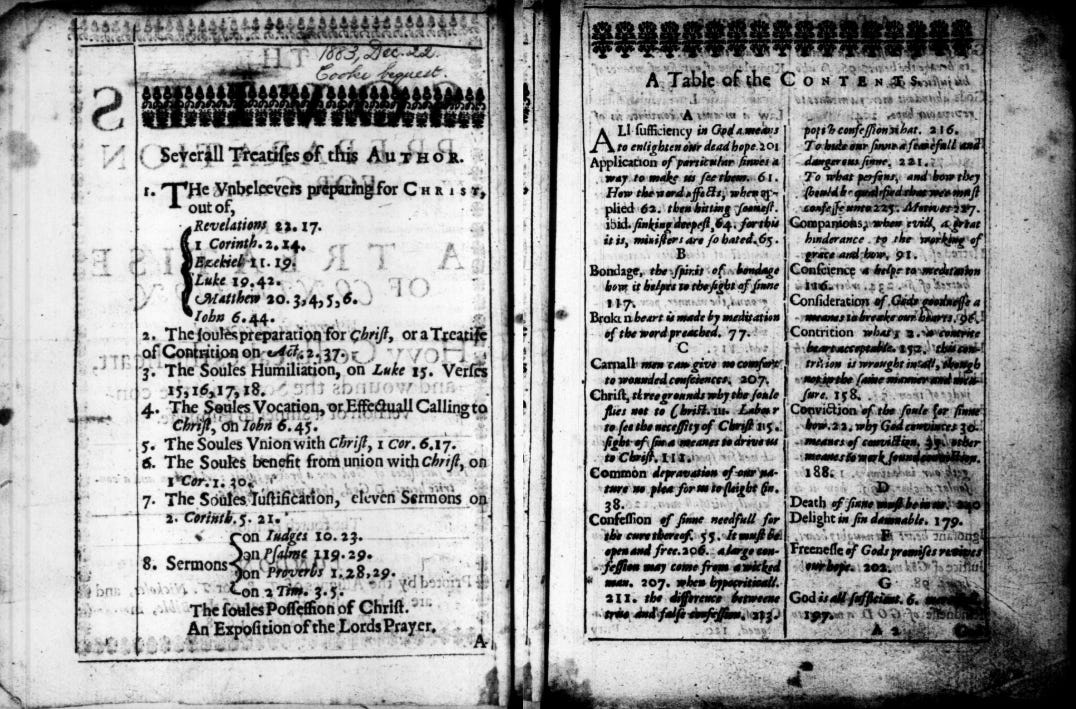 1883, Dec. 22.
Cooke bequest.
Severall Treatises of this AUTHOR.
1. THe Vnbeleevers preparing for CHRIST,
out of,
Revelations 22. 17.
1 Corinth. 2. 14.
Ezekiel 11. 19.
Luke 19. 42.
Matthew 20. 3, 4, 5, 6.
Iohn 6. 44.
2. The soules preparation for Christ, or a Treatise
of Contrition on Act. 2. 37.
3. The Soules Humiliation, on Luke 15. Verses
15, 16, 17, 18.
4. The Soules Vocation, or Effectuall Calling to
Christ, on Iohn 6. 45.
5. The Soules Vnion with Christ, 1 Cor. 6. 17.
6. The Soules benefit from union with Christ, on
1 Cor. 1. 30.
7. The Soules Iustification, eleven Sermons on
2. Corinth. 5. 21.
8. Sermons
on Iudges 10. 23.
on Psalme 119. 29.
on Proverbs 1. 28, 29.
on 2 Tim. 3. 5.
The soules Possession of Christ.
An Exposition of the Lords Prayer.
A
A Table of the CONTENTS.
A
ALl-sufficiency in God a means
to enlighten our dead hope. 201
Application of particular sinnes a
way to make us see them. 61.
How the word affects, when ap-
plied 62. then hitting soonest.
ibid. sinking deepest, 64. for this
it is, ministers are so hated. 65.
B
Bondage, the spirit of bondage
how it helpes to the sight of sinne
117.
Broken heart is made by meditation
of the word preached. 77.
C
Carnall men can give no comfort
to wounded consciences, 207.
Christ, three grounds why the soule
flies not to Christ. iii. Labour
to see the necessity of Christ 115.
sight of sin a meanes to drive us
to Christ. 111.
Common depravation of our na-
ture no plea for us to sleight sin.
38.
Confession of sinne needfull for
the cure thereof. 55. It must be
open and free. 206. a large con-
fession may come from a wicked
man. 207. when hypocriticall.
211. the difference betweene
true and false confession. 213.
confession what. 216.
To hide our sinne a fearefull and
dangerous sinne. 221.
To what persons, and how they
should be qualified that we must
confesse unto 225. Motives 227.
Companions, when evill, a great
hinderance to the working of
grace and how, 91.
Conscience a helpe to meditation
116.
Consideration of Gods goodnesse a
meanes to breake our hearts, 96.
Contrition what, 2. a contrite
heart acceptable. 152. this con-
trition is wrought in all, though
not in the same manner and mea-
sure. 158.
Conviction of the soule for sinne
how. 22. why God convinces 30.
meanes of conviction, 35. other
meanes to work sound conviction.
188.
D
Death of sinne must be in us. 240
Delight in sin damnable. 179.
F
Freenesse of Gods promises revives
our hope. 202.
G
God is all sufficient. 6.
197.
A 2